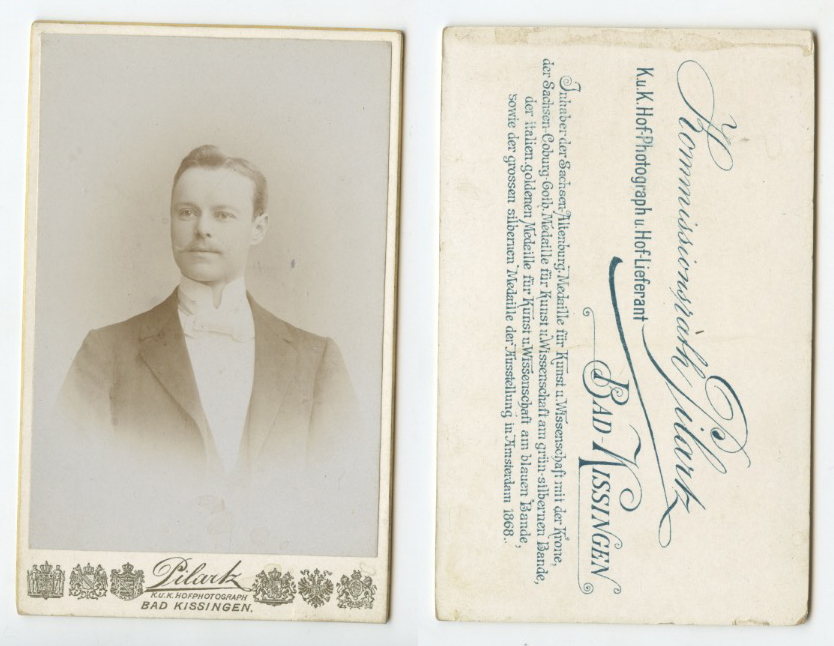 Pilartz
K.u.K. HOFPHOTOGRAPH
BAD KISSINGEN.
Kommissionsrath Pilartz
K.u.K. Hof-Photograph u. Hof-Lieferant
BAD-KISSINGEN
Inhaber der Sachsen-Altenburg. Medaille für Kunst u. Wissenschaft mit der Krone,
der Sachsen-Coburg-Goth. Medaille für Kunst u. Wissenschaft am grün-silbernen Bande,
der italien. goldenen Medaille für Kunst u. Wissenschaft am blauen Bande,
sowie der grossen silbernen Medaille der Ausstellung in Amsterdam 1868.